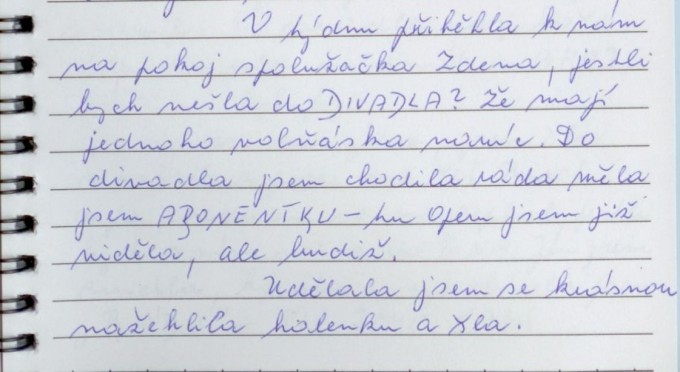 V týdnu přiběhla k nám
na pokoj spolužačka Zdena, jestli
bych nešla do DIVADLA? Že mají
jednoho volňáska navíc. Do
divadla jsem chodila ráda měla
jsem ABONENTKU - tu Operu jsem již
viděla, ale budiž.
Udělala jsem se krásnou
nažehlila halenku a šla.